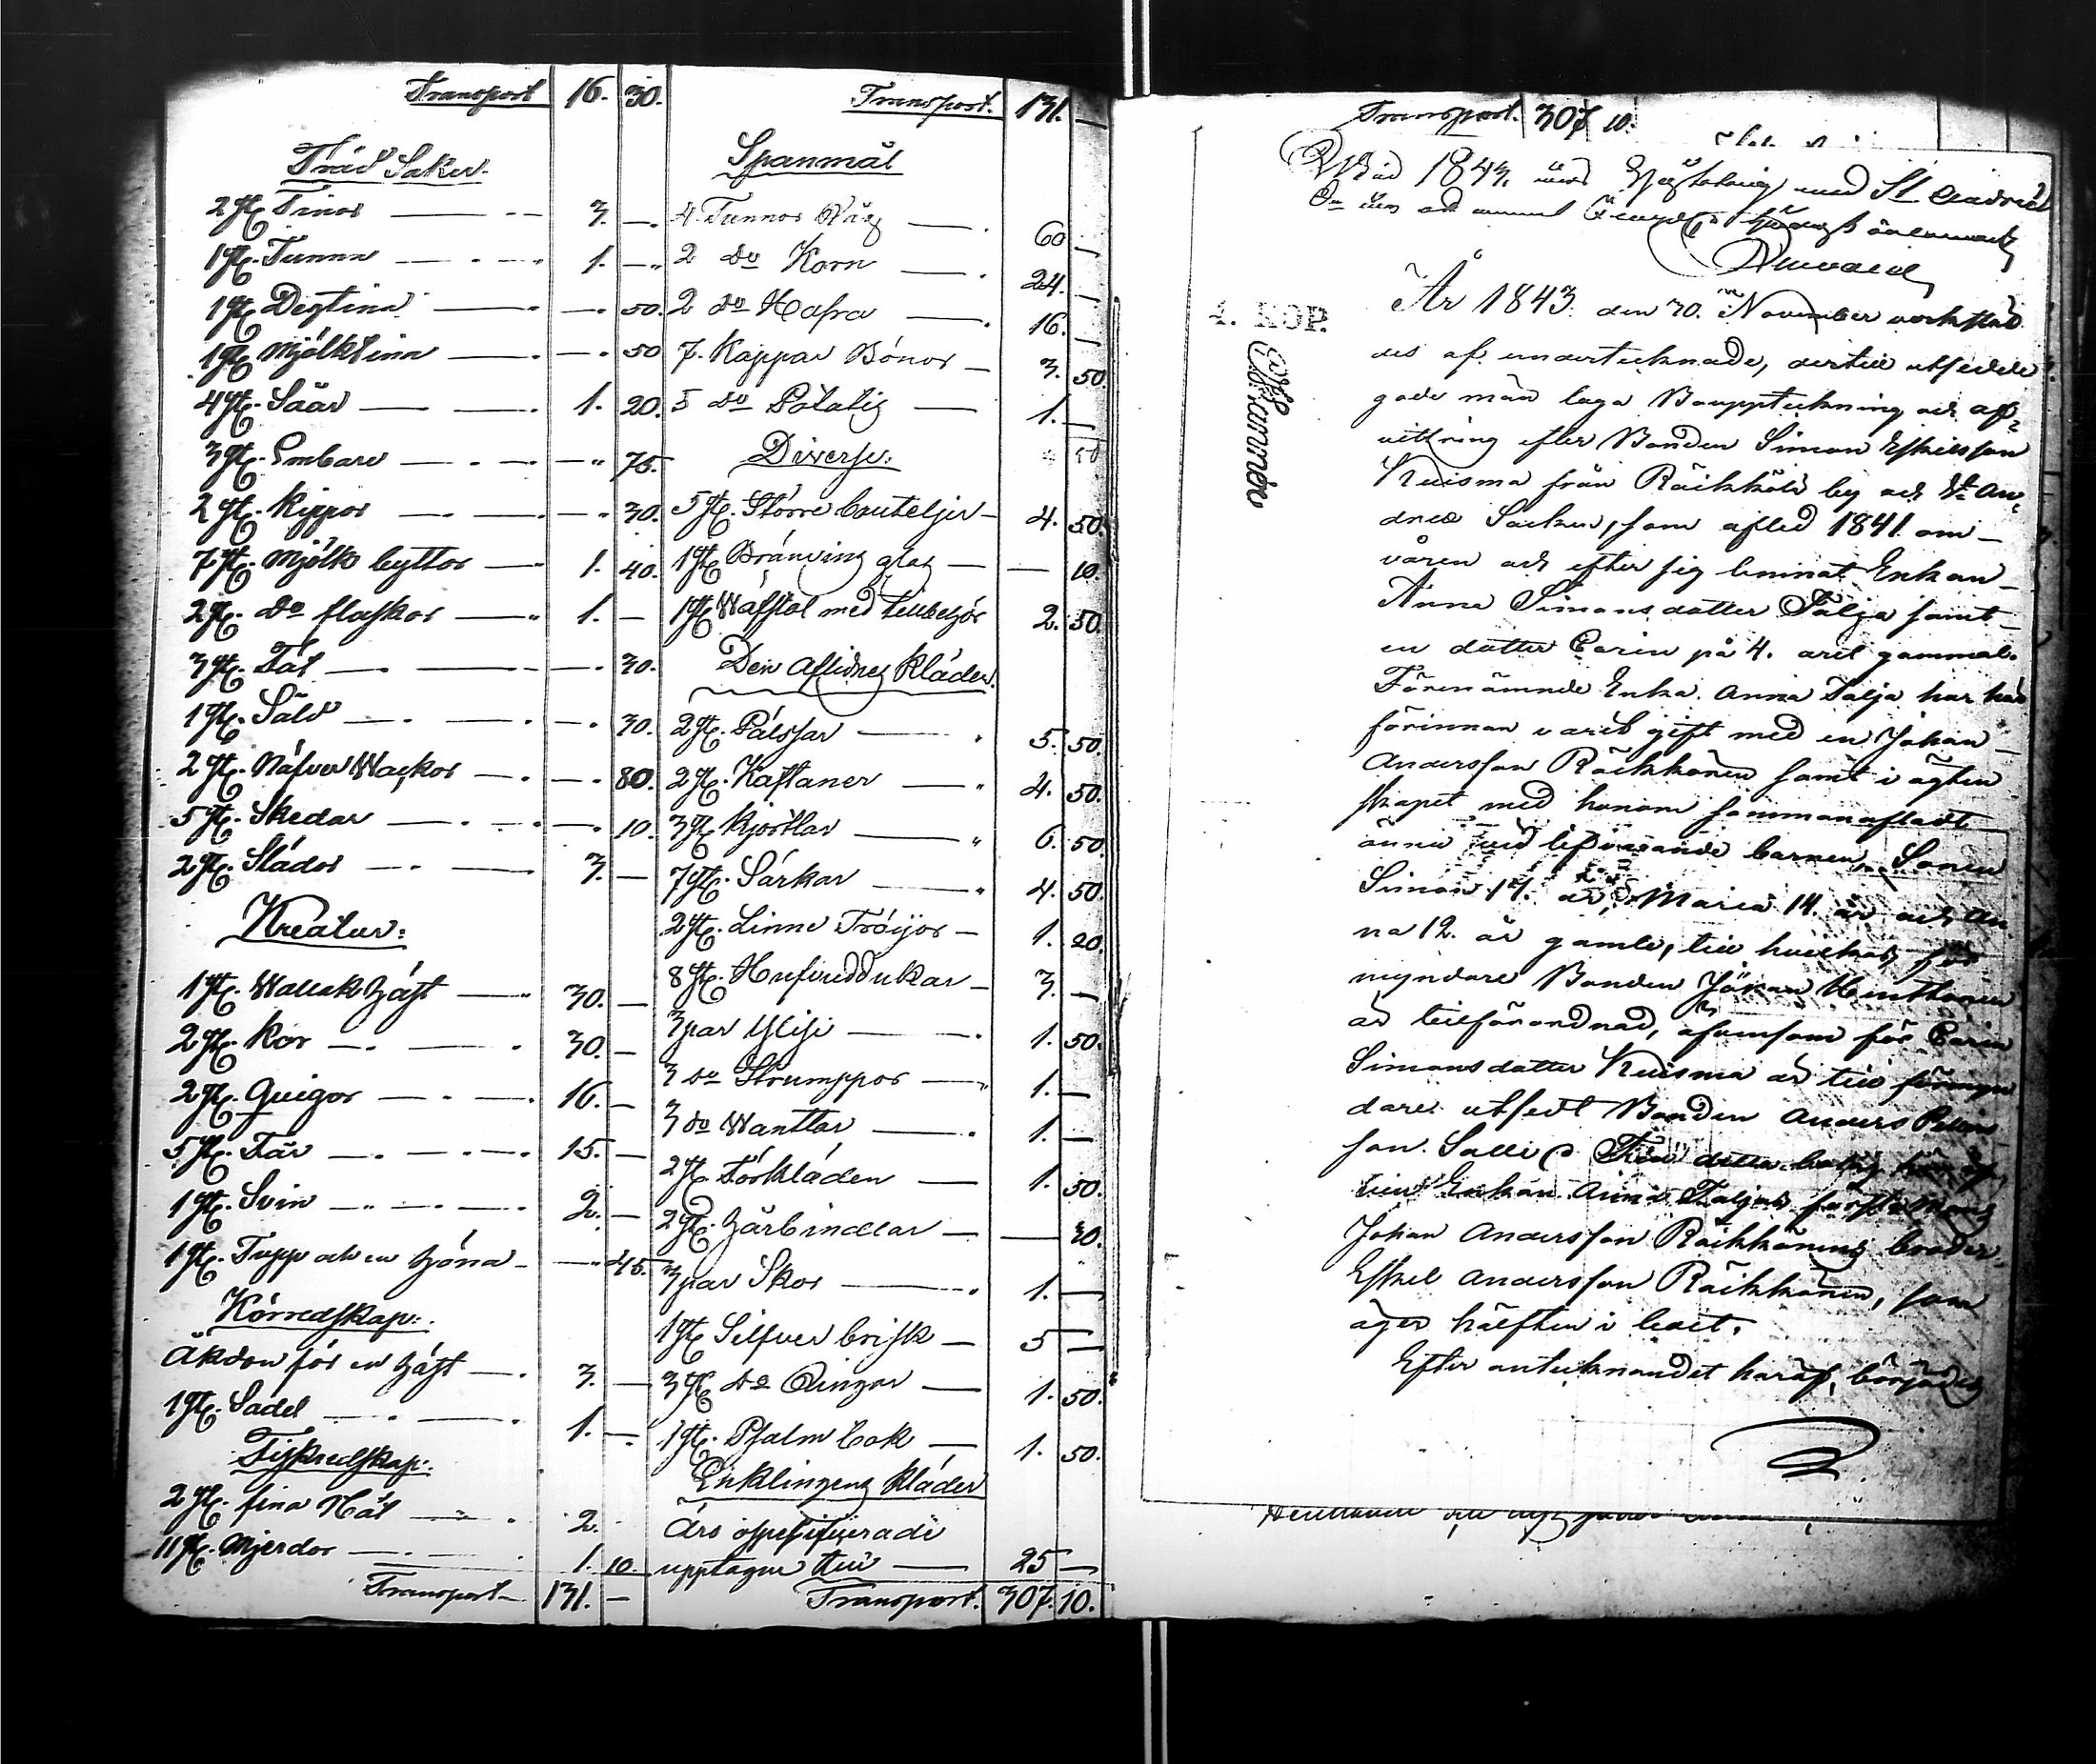 Transport 16. 30.
Träd Saker.
2 st. Tinor 3. —
1 st. Tunna 1. —
1 st. Degtina — 50.
1 st. Mjölktina — 50
4 st. Såar 1. 20.
3 st. Embare — 75.
2 st. Kippor — 30.
7 st. Mjölk byttor 1. 40.
2 st. do flaskor 1. —
3 st. Fat — 30.
1 st. Såld — 30.
2 st. Näfver Wackor — 80.
5 st. Skedar — 10.
2 st. Slädor 3. —
Kreatur:
1 st. Wallak häst 30. —
2 st. Kor 30. —
2 st. Quigor 16. —
5 st. Får 15. —
1 st. Svin 2. —
1 st. Tupp och en höna — 45.
Körredskap:
Åkdon för en häst 3. —
1 st. Sadel 1. —
Fiskredskap:
2 st. fina Nät 2.
11 st. Mjerdor 1. 10.
Transport 131. —
Transport. 131. —
Spanmål
4. Tunnor Råg 60 —
2 do Korn 24. —
2 do Hafra 16. —
7. Kappar Bönor 3. 50.
5 do Potatis 1. —
Diverse:
5 st. Större bouteljer 4. 50.
1 st. Bränvins glas — 10.
1 st. Wäfstol med tillbehör 2. 50.
Den Aflidnes Kläder.
2 st. Pälsar 5. 50.
2 st. Kaftaner 4. 50.
3 st. Kjortlar 6. 50.
7 st. Särkar 4. 50.
2 st. Linne Tröijor 1. 20.
8 st. Hufvuddukar 3. —
3 par 1. 50.
3 do Strumppor 1. —
3 do Wanttar 1. —
2 st. Förkläden 1. 50.
2 st. Hårbindlar — 30.
3 par Skor 1. —
1 st. Silfver brisk 5 —
3 st. do Ringar 1. 50.
1 st. Psalm bok 1. 50.
Enklingens Kläder
äro ospesifiserade
upptagne till 25 —
Transport. 307. 10.
Transport. 307 10.
Wid 1843. med St Andreæ
År 1843. den 30. November verkstäld
des af undertecknade, dertill utsedde
gode män laga Bouppteckning och af-
vittring efter Bonden Simon Eskilsson
Kuisma från Räikkölä by och St. An-
dreæ Socken, som afled 1841. om
våren och efter sig lemnat Enkan
Anna Simonsdotter Talja samt
en dotter Carin på 4. året gammal.
Förenämnde Enka Anna Talja har här
förinnan varit gift med en Johan
Andersson Räikkönen samt i ägten
skapet med honom sammanafladt
ännu vid lif varande barnen, Sonen
Simon 17. år, Maria 14. år och An
na 12. år gamle, till hvilkas för
myndare Bonden Johan Henttonen
är tillförordnad, äfvensom för Carin
Simonsdotter Kuisma är till förmyn
dare utsedt Bonden Anders
son Salli. detta
till Enkan Anna Taljas första Mans
Johan Andersson Räikkönens broder
Eskel Andersson Räikkönen, som
äger hälften i boet.
Efter antecknandet häraf, börjades
4. KOP.